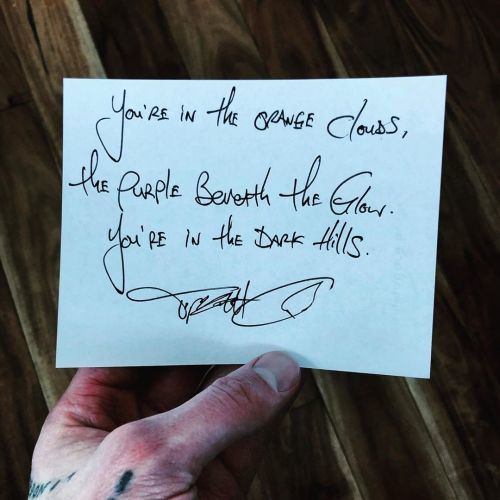 You're in the orange clouds,
the purple beneath the glow.
You're in the dark hills.